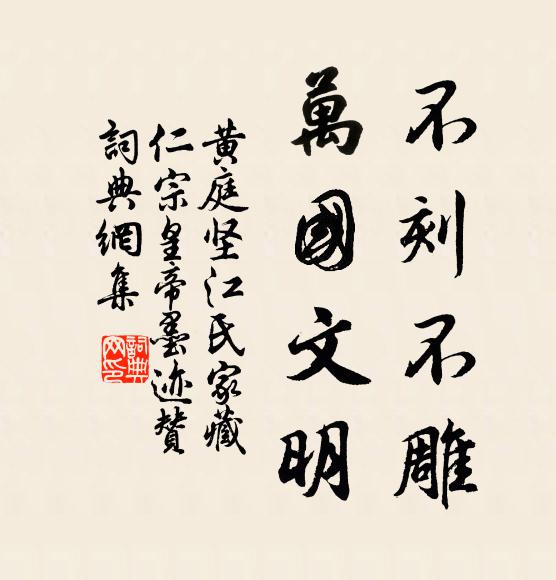 不刻不雕
萬國文明
黃庭坚江氏家藏
仁宗皇帝墨迹贊
詞典網集
詞典
网印